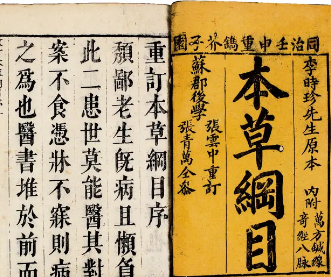 同治壬申重鐫芥子園
李時珍先生原本
內附
萬方鍼線
奇經八脉
本草綱目
蘇郡後學
張雲中重訂
張青萬全參
重訂本草綱目序
頽鄙老生旣病且懶負
此二患世莫能醫其對
案不食憑牀不寐則病
之爲也醫書堆於前而